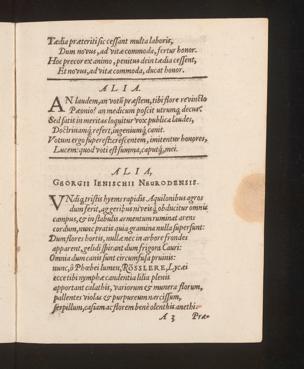 Tædia præteriti sic cessant multa laboris,
Dum novus, ad vitæ commoda, fertur honor.
Hoc precor ex animo, penitus dein tædia cessent,
Et novus, ad vitæ commoda, ducat honor.
ALIA.
AN laudem, an votũ præstem, tibi flore revincto
Pæonio? an medicum poscit utrumq; decus?
Sed satis in meritas loquitur vox publica laudes,
Doctrinamq́; refert, ingeniumq́; canit.
Votum ergo superest: crescentem, imitentur honores,
Lucem: quod voti est summa, caputq́; mei.
ALIA,
GEORGII IENISCHII NEURODENSIS.
VNdiq; tristis hyems rapidis Aquilonibus agros
dum ferit, aggeribus niveis q́; obducitur omnis
campus, & in stabulis armentum ruminat arens
cordum, nunc pratis quia gramina nulla supersunt:
Dum flores hortis, nullæ nec in arbore frondes
apparent, gelidi spirant dum frigora Cauri:
Omnia dum canis sunt circumfusa pruinis:
nunc, ô Phœbei lumen, RÖSSLERE, Lycæi
ecce tibi nymphæ candentia lilia plenis
apportant calathis, variorum & munera florum,
pallentes violas & purpureum narcissum,
serpillum, casiam ac florem benè olentis anethi:
A 3 Præ-